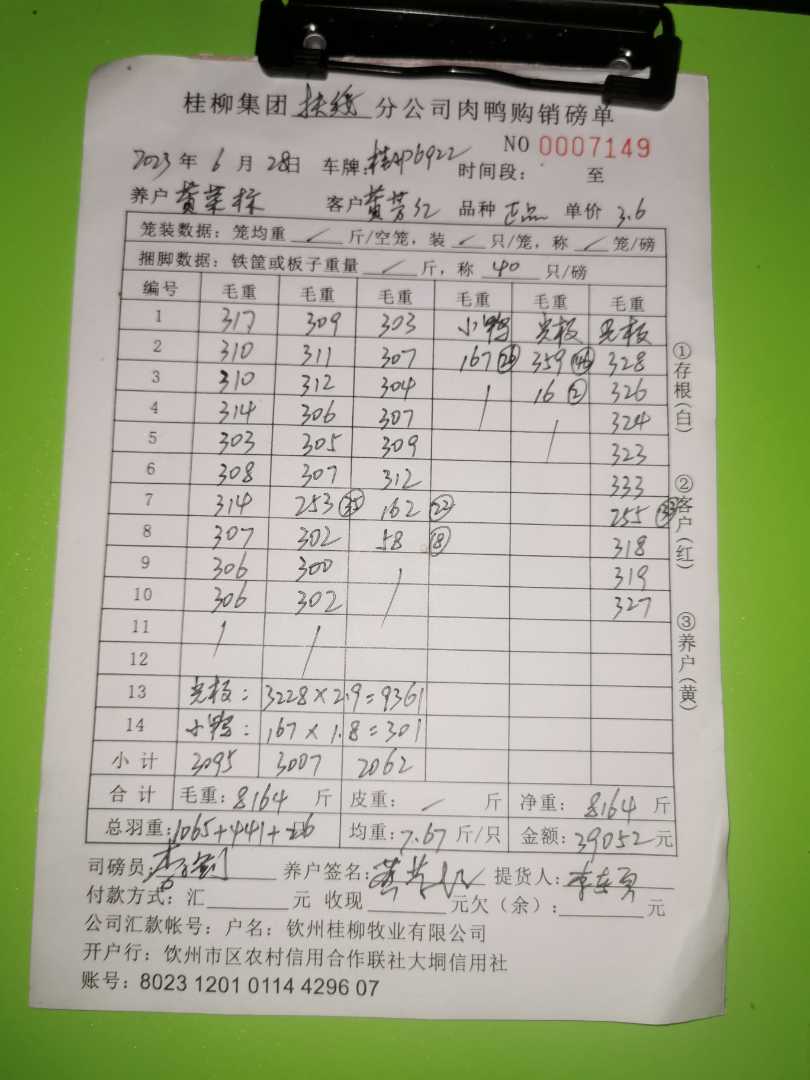 桂柳集团 扶绥 分公司肉鸭购销磅单
NO 0007149
2023 年 6 月 28日 车牌: 6922 时间段: 至
养户 黄荣标 客户 黄芳红 品种 正品 单价 3.6
笼装数据: 笼均重 / 斤/空笼, 装 / 只/笼, 称 / 笼/磅
捆脚数据: 铁筐或板子重量 / 斤, 称 40 只/磅
编号 毛重 毛重 毛重 毛重 毛重 毛重
1 317 309 303 小鸭 光板 光板
2 310 311 307 167 26 359 328
3 310 312 304 / 16 2 326
4 314 306 307 / 324
5 303 305 309 323
6 308 307 312 333
7 314 253 35 162 22 255
8 307 302 58 8 318
9 306 300 / 319
10 306 302 / 327
11 / /
12 /
13 光板: 3228×2.9=9361
14 小鸭: 167×1.8=301
小 计 3095 3007 2062
合 计 毛重: 8164 斤 皮重: / 斤 净重: 8164 斤
总羽重: 1065+441+26 均重: 7.67 斤/只 金额: 39052 元
司磅员: 养户签名: 提货人:
付款方式: 汇 元 收现 元欠(余): 元
公司汇款帐号: 户名: 钦州桂柳牧业有限公司
开户行: 钦州市区农村信用合作联社大垌信用社
账号: 8023 1201 0114 4296 07
①存根(白) ②客户(红) ③养户(黄)